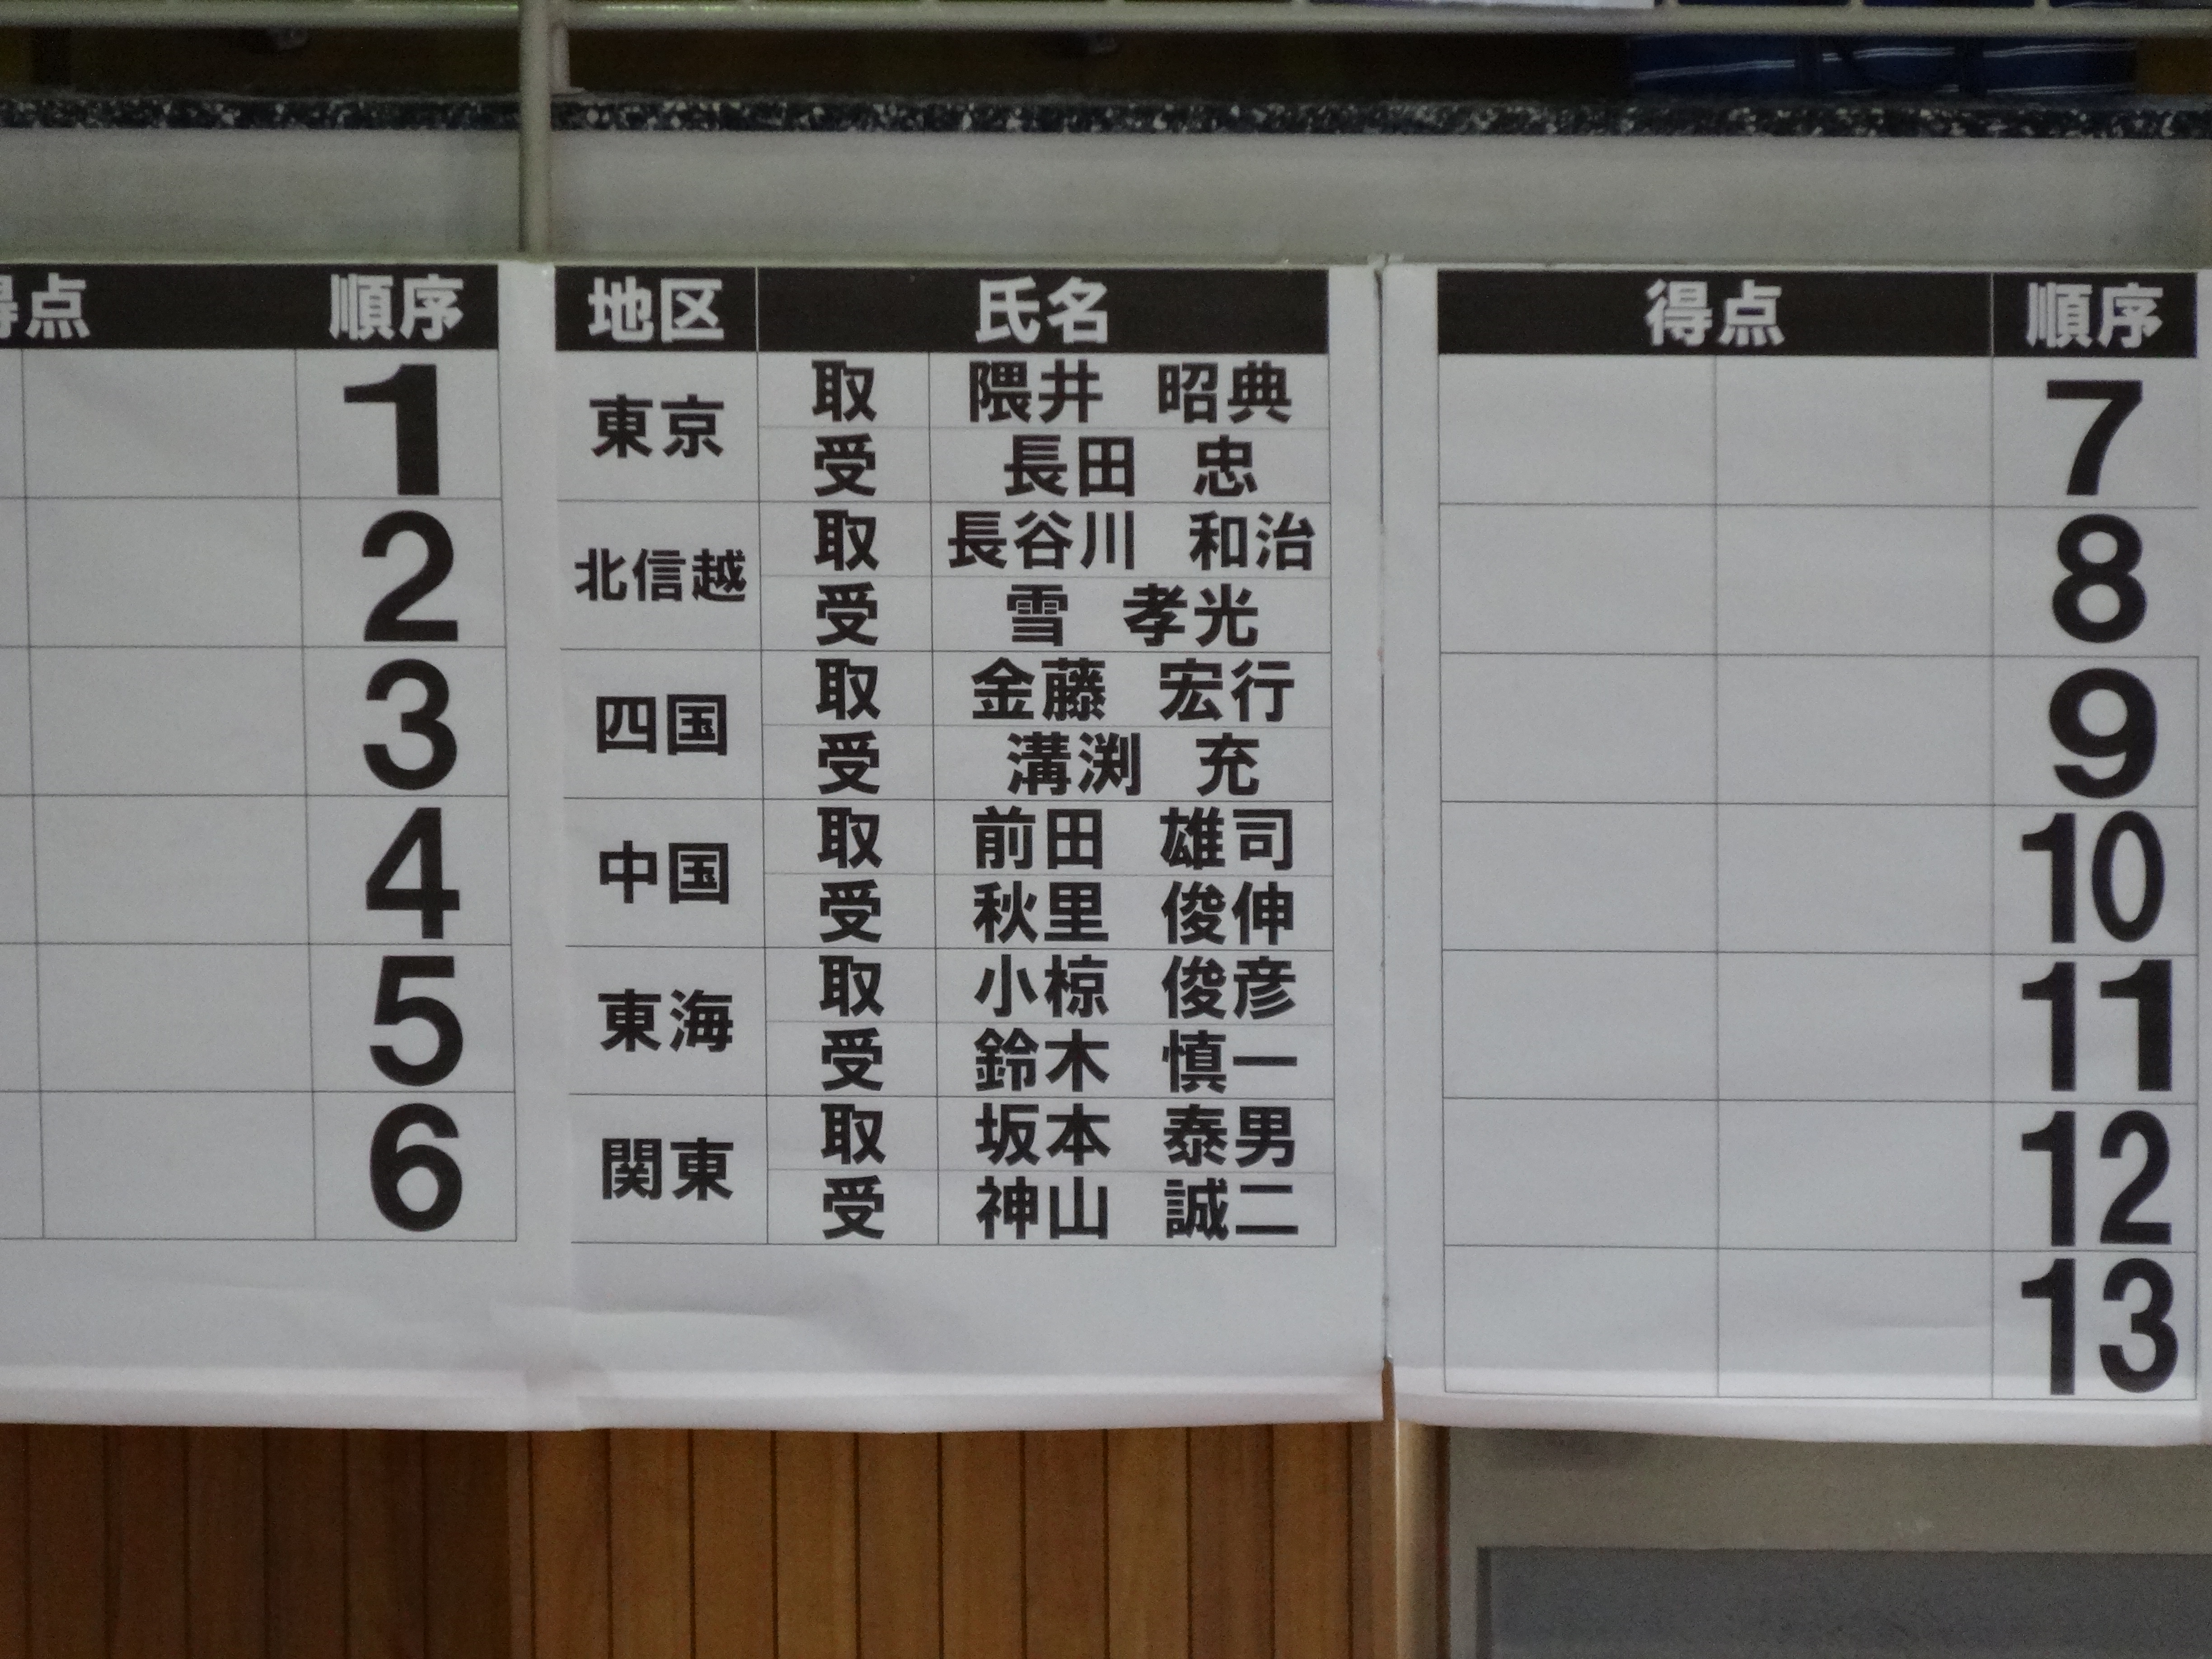 得点 順序 地区 氏名 得点 順序
1 東京 取 隈井 昭典 7
受 長田 忠
2 北信越 取 長谷川 和治 8
受 雪 孝光
3 四国 取 金藤 宏行 9
受 溝渕 充
4 中国 取 前田 雄司 10
受 秋里 俊伸
5 東海 取 小椋 俊彦 11
受 鈴木 慎一
6 関東 取 坂本 泰男 12
受 神山 誠二
13